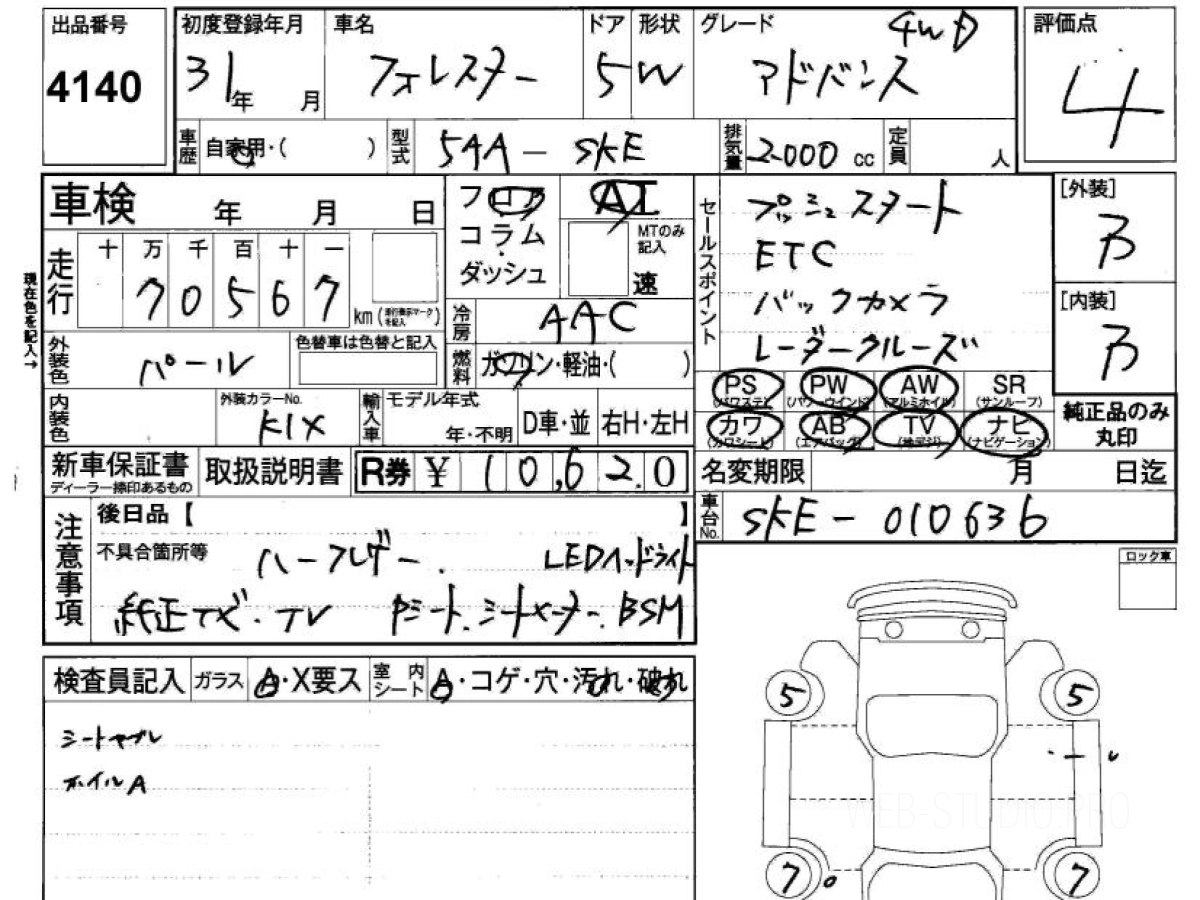 出品番号
4140
初度登録年月
31年 月
車名
フォレスター
ドア
5
形状
W
グレード
4WD
アドバンス
評価点
4
車歴
自家用・( )
型式
5AA - SKE
排気量
2000 cc
定員
人
車検 年 月 日
フロア
コラム
ダッシュ
AI
MTのみ記入
速
セールスポイント
プッシュスタート
ETC
バックカメラ
レーダークルーズ
[外装]
B
[内装]
B
現在色を記入→
走行
十 万 千 百 十 一
7 0 5 6 7
km (走行表示マークを記入)
冷房
AAC
外装色
パール
色替車は色替と記入
燃料
ガソリン・軽油・( )
PS (パワステ)
PW (パワーウインド)
AW (アルミホイル)
SR (サンルーフ)
カワ (カワシート)
AB (エアバッグ)
TV (地デジ)
ナビ (ナビゲーション)
純正品のみ丸印
内装色
外装カラーNo.
K1X
輸入車
モデル年式
年・不明
D車・並
右H・左H
新車保証書
ディーラー捺印あるもの
取扱説明書
R券 ¥ 10,620
名変期限 月 日迄
車台No.
SKE - 010636
注意事項
後日品【 】
不具合箇所等
ハーフレザー. LEDヘッドライト
純正ナビ・TV Pシート.シートヒーター.BSM
ロック車
検査員記入
ガラス
A・X要ス
室内シート
A・コゲ・穴・汚れ・破れ
シートヤブレ
ホイルA
5
5
7
7
WEB-STUDIO.PRO